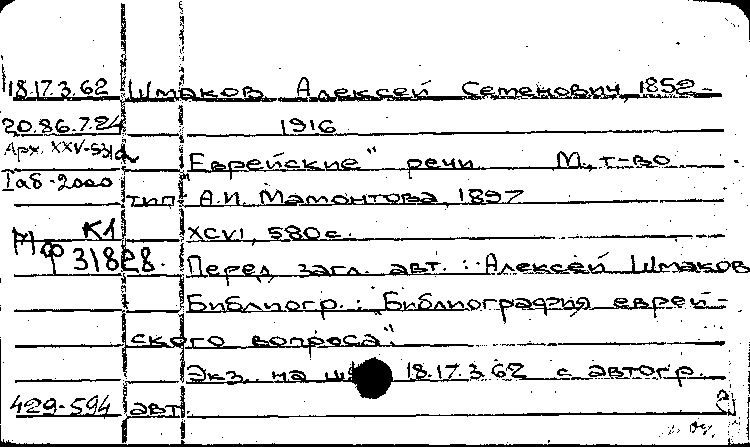 18.17.3.62 Шмаков Алексей Семенович, 1852-
20.86.7.24 1916
Арх. XXV-53/а "Еврейские" речи М., т-во
Iаб-2000 тип. А.И. Мамонтова, 1897
К1 XCVI, 580с.
Мф 31828. Перед загл. авт.: Алексей Шмаков
Библиогр.: "Библиография еврей-
ского вопроса".
Экз. на 18.17.3.62 с автогр.
429-594 авт.